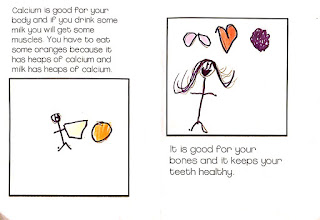 Calcium is good for your
body and if you drink some
milk you will get some
muscles. You have to eat
some oranges because it
has heaps of calcium and
milk has heaps of calcium.
It is good for your
bones and it keeps your
teeth healthy.